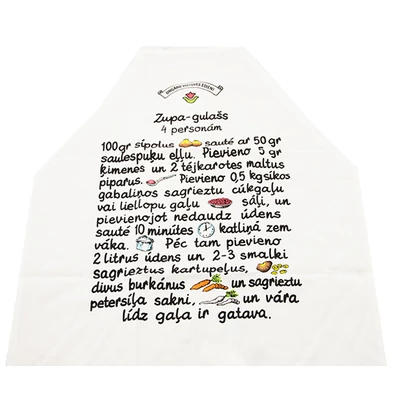 UNGĀRU VIRTUVES ĒDIENI
Zupa-gulašs
4 personām
100gr sīpolus sautē ar 50gr
saulespuķu eļļu. Pievieno 5 gr
ķimenes un 2 tējkarotes maltus
piparus. Pievieno 0,5 kg sīkos
gabaliņos sagrieztu cūkgaļu
vai liellopu gaļu sāli, un
pievienojot nedaudz ūdens
sautē 10 minūtes katliņā zem
vāka. Pēc tam pievieno
2 litrus ūdens un 2-3 smalki
sagrieztus kartupeļus,
divus burkānus un sagrieztu
petersīļa sakni, un vāra
līdz gaļa ir gatava.